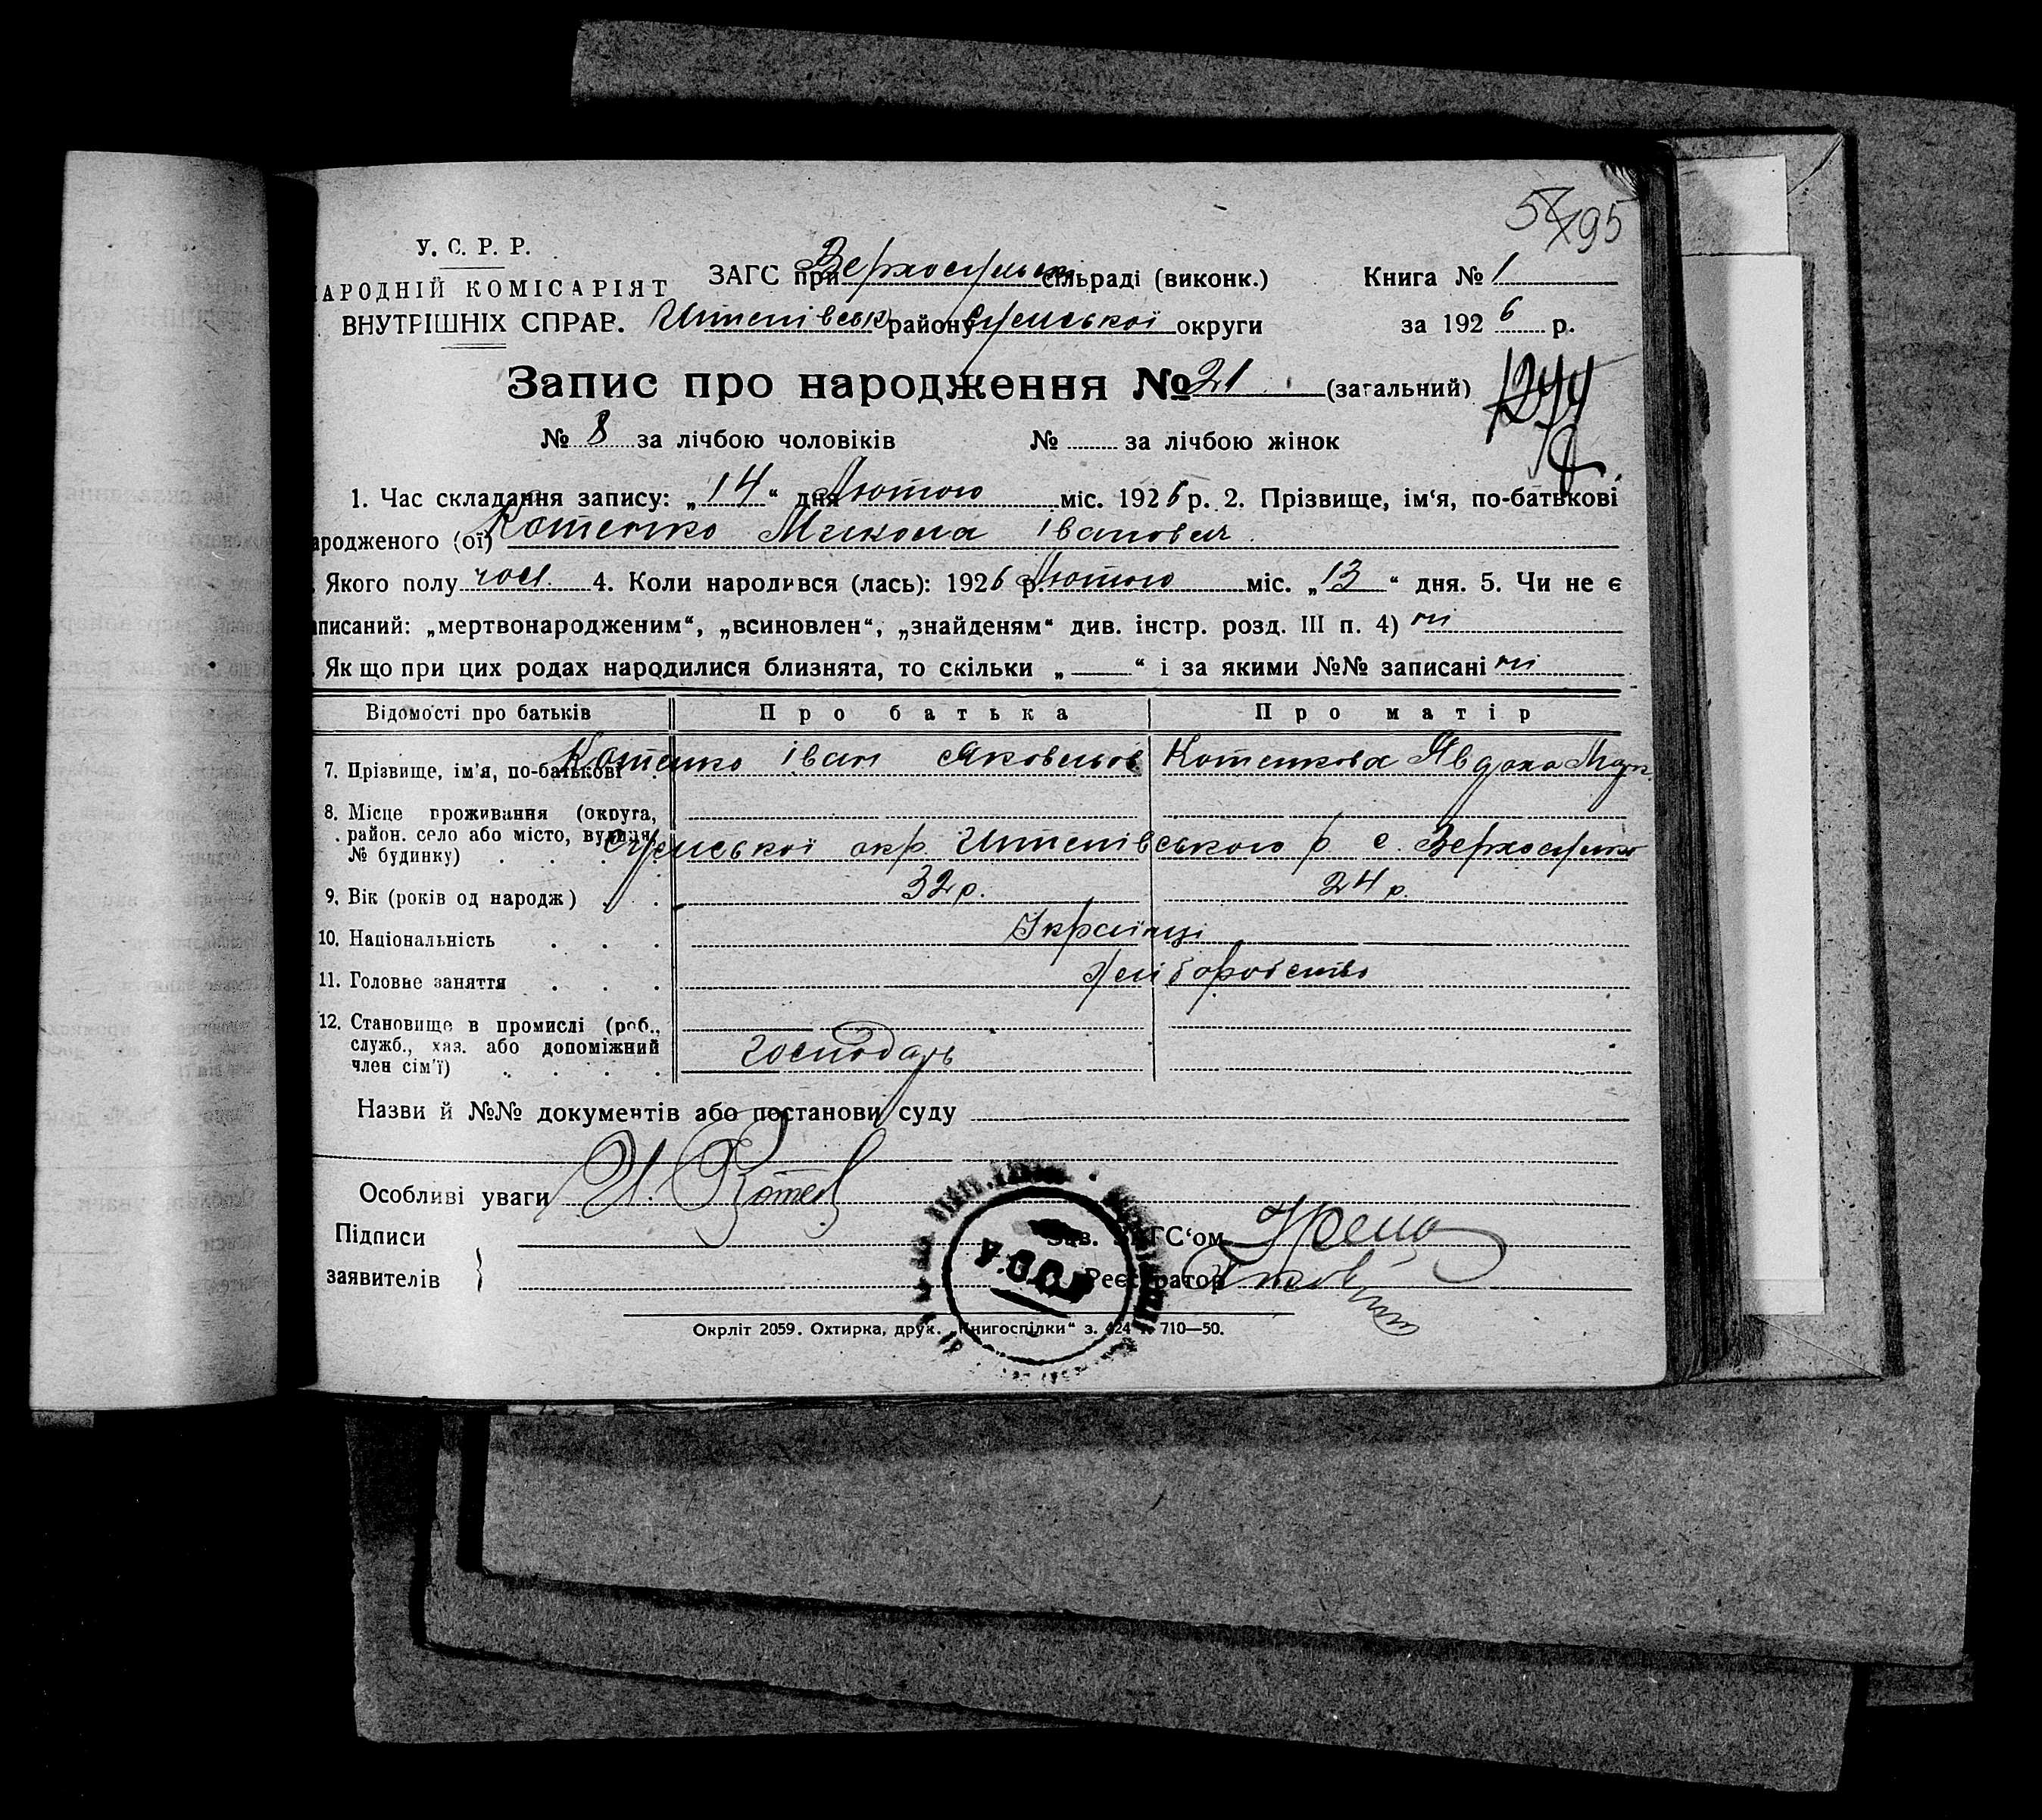 54 195
У. С. Р. Р.
АРОДНІЙ КОМІСАРІЯТ
ВНУТРІШНІХ СПРАВ.
ЗАГС при Верхосульськ сільраді (виконк.) Книга № 1
Штепівськ району Сумської округи за 1926 р.
Запис про народження № 21 (загальний)
№ 8 за лічбою чоловіків № за лічбою жінок
1. Час складання запису: „14“ дня Лютого міс. 1926 р. 2. Прізвище, ім‘я, по-батькові
ародженого (ої) Котенко Микола Іванович
Якого полу чол. 4. Коли народився (лась): 1926 р. Лютого міс. „13“ дня. 5. Чи не є
аписаний: „мертвонародженим“, „всиновлен“, „знайденям“ див. інстр. розд. III п. 4) ні
Як що при цих родах народилися близнята, то скільки „ “ і за якими №№ записані ні
Відомості про батьків Про батька Про матір
7. Прізвище, ім‘я, по-батькові Котенко Іван Яковльов Котенкова Явдоха
8. Місце проживання (округа,
район. село або місто, вулиця,
№ будинку) Сумської окр Штепівського р с. Верхосулка
9. Вік (років од народж) 32 р. 24 р.
10. Національність Українці
11. Головне заняття Хліборобство
12. Становище в промислі (роб.,
служб., хаз. або допоміжний
член сім‘ї) Господарь
Назви й №№ документів або постанови суду
Особливі уваги И. Котен
Підписи
заявителів
Зав. ЗАГС‘ом
Реєстратор
УСРР
Окрліт 2059. Охтирка, друк. „Книгоспілки“ з. 424 т. 710—50.